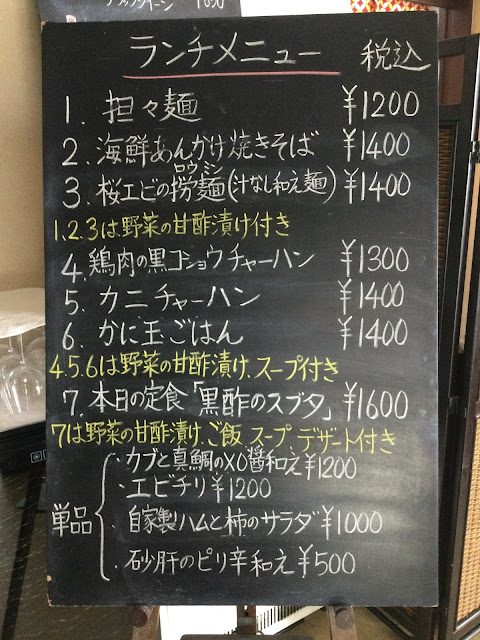 ランチメニュー 税込
1. 担々麺 ¥1200
2. 海鮮あんかけ焼きそば ¥1400
ロウミン
3. 桜エビの撈麺(汁なし和え麺) ¥1400
1.2.3は野菜の甘酢漬け付き
4. 鶏肉の黒コショウチャーハン ¥1300
5. カニチャーハン ¥1400
6. かに玉ごはん ¥1400
4.5.6は野菜の甘酢漬け.スープ付き
7. 本日の定食「黒酢のスブタ」 ¥1600
7は野菜の甘酢漬け.ご飯 スープ.デザート付き
単品
・カブと真鯛のXO醤和え ¥1200
・エビチリ ¥1200
・自家製ハムと柿のサラダ ¥1000
・砂肝のピリ辛和え ¥500